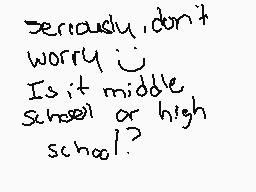 seriously, don't
worry
Is it middle
school or high
school?